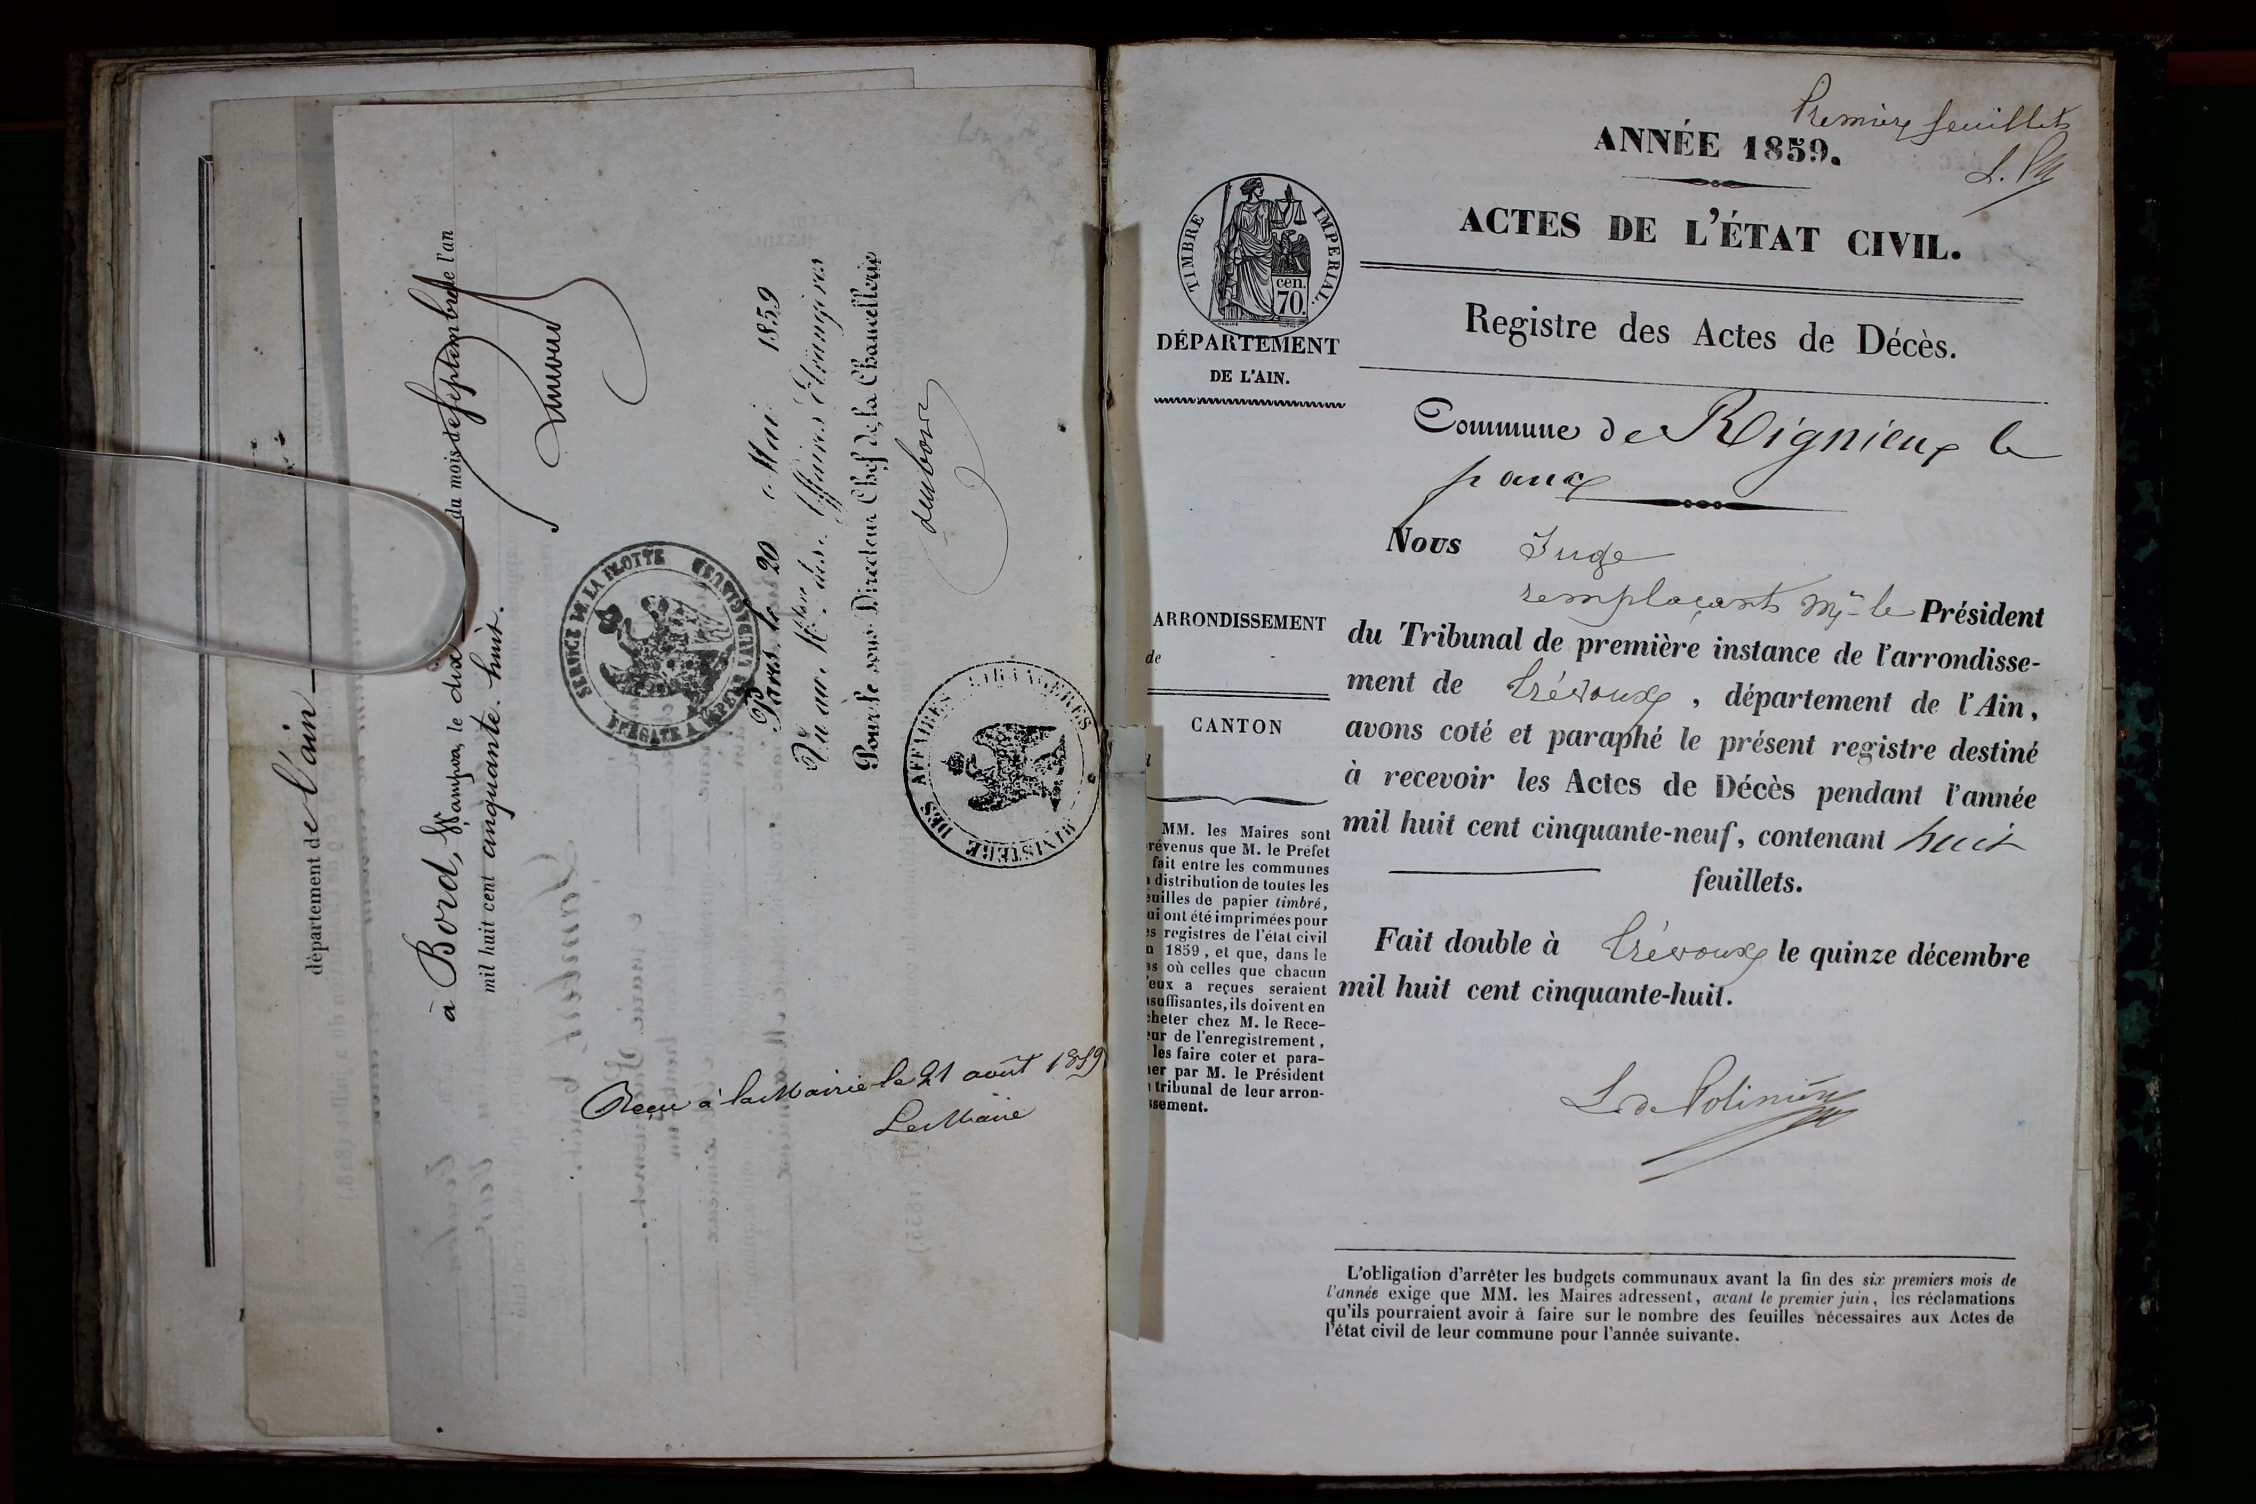 département de l'ain
à Bord, Wampoa, le dix du mois de Septembre de l'an
mil huit cent cinquante-huit.
SERVICE DE LA FLOTTE
Paris, le 20 Mai 1859
Vu au Mtère des Affaires Étrangères
Pour le sous-Directeur Chef de la Chancellerie
dubois
MINISTERE DES AFFAIRES ETRANGERES
Reçu à la Mairie le 21 août 1859
Le Maire
Premier feuillet
L. P
ANNÉE 1859.
ACTES DE L'ÉTAT CIVIL.
TIMBRE IMPERIAL.
cen.
70.
DÉPARTEMENT
DE L'AIN.
Registre des Actes de Décès.
Commune de Rignieux le
franc
Nous Juge
remplaçant Mr le Président
du Tribunal de première instance de l'arrondisse-
ment de Trévoux, département de l'Ain,
avons coté et paraphé le présent registre destiné
à recevoir les Actes de Décès pendant l'année
mil huit cent cinquante-neuf, contenant huit
feuillets.
Fait double à Trévoux le quinze décembre
mil huit cent cinquante-huit.
L. de Polinière
ARRONDISSEMENT
de
CANTON
MM. les Maires sont
révenus que M. le Préfet
fait entre les communes
distribution de toutes les
euilles de papier timbré,
ui ont été imprimées pour
es registres de l'état civil
n 1859, et que, dans le
as où celles que chacun
'eux a reçues seraient
nsuffisantes, ils doivent en
cheter chez M. le Rece-
eur de l'enregistrement,
les faire coter et para-
her par M. le Président
tribunal de leur arron-
issement.
L'obligation d'arrêter les budgets communaux avant la fin des six premiers mois de
l'année exige que MM. les Maires adressent, avant le premier juin, les réclamations
qu'ils pourraient avoir à faire sur le nombre des feuilles nécessaires aux Actes de
l'état civil de leur commune pour l'année suivante.